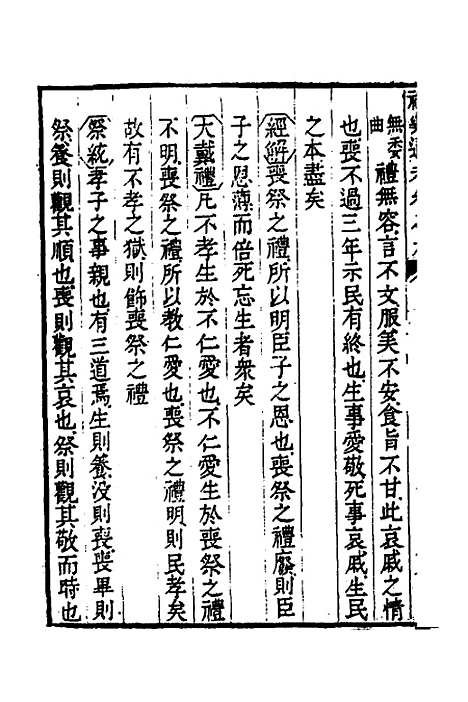 無委曲禮無容言不文服美不安食旨不甘此哀戚之情
也喪不過三年示民有終也生事愛敬死事哀戚生民
之本盡矣
經解喪祭之禮所以明臣子之恩也喪祭之禮廢則臣
子之恩薄而倍死忘生者衆矣
大戴禮凡不孝生於不仁愛也不仁愛生於喪祭之禮
不明喪祭之禮所以教仁愛也喪祭之禮明則民孝矣
故有不孝之獄則飾喪祭之禮
祭統孝子之事親也有三道焉生則養没則喪喪畢則
祭養則觀其順也喪則觀其哀也祭則觀其敬而時也